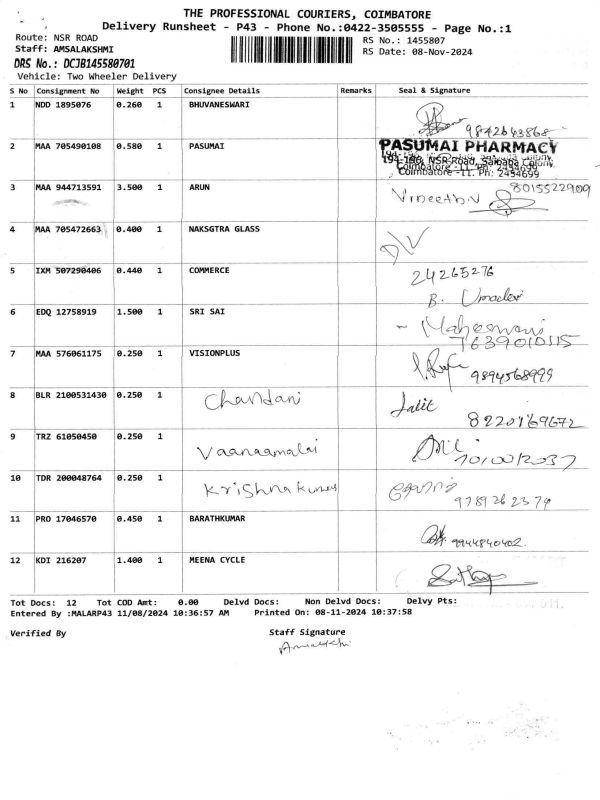 THE PROFESSIONAL COURIERS, COIMBATORE
Delivery Runsheet - P43 - Phone No.:0422-3505555 - Page No.:1
Route: NSR ROAD RS No.: 1455807
Staff: AMSALAKSHMI RS Date: 08-Nov-2024
DRS No.: DCJB145580701
Vehicle: Two Wheeler Delivery
S No Consignment No Weight PCS Consignee Details Remarks Seal & Signature
1 NDD 1895076 0.260 1 BHUVANESWARI
9842643868
2 MAA 705490108 0.580 1 PASUMAI PASUMAI PHARMACY
194-196, NSR Road, Saibaba Colony,
Coimbatore -11. Ph: 2454699
3 MAA 944713591 3.500 1 ARUN 8015522909
Vineeth.V
4 MAA 705472663 0.400 1 NAKSGTRA GLASS
D/V
5 IXM 507290406 0.440 1 COMMERCE 24265276
B. Umadevi
6 EDQ 12758919 1.500 1 SRI SAI
- Maheswari
7 MAA 576061175 0.250 1 VISIONPLUS
9894568999
8 BLR 2100531430 0.250 1 Chandani Lalit
8220169672
9 TRZ 61050450 0.250 1 Vaanaamalai
10 TDR 200048764 0.250 1 Krishna kumar
11 PRO 17046570 0.450 1 BARATHKUMAR
9944840402.
12 KDI 216207 1.400 1 MEENA CYCLE
Tot Docs: 12 Tot COD Amt: 0.00 Delvd Docs: Non Delvd Docs: Delvy Pts:
Entered By :MALARP43 11/08/2024 10:36:57 AM Printed On: 08-11-2024 10:37:58
Verified By Staff Signature